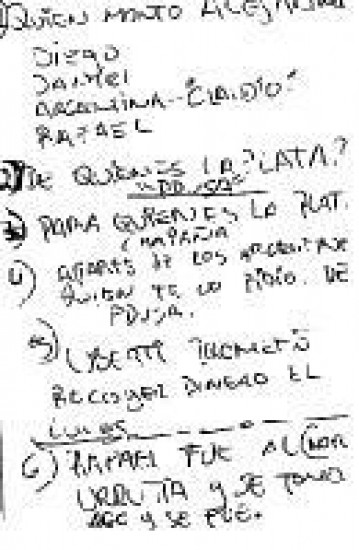 QUIEN MONTO
DIEGO
DANIEL
ARGENTINA - "CLAUDIO"
RAFAEL
2) DE QUIEN ES LA PLATA?
"PDVSA"
3) PARA QUIEN ES LA PLAT.
CAMPAÑA
4) APARTE DE LOS
QUIEN TE LO PIDIO. DE
PDVSA.
5) UBERTI PROMETIO
RECOGER DINERO EL
LUNES
6) RAFAEL FUE AL
URRUTIA Y SE TOMO
ALGO Y SE FUE.